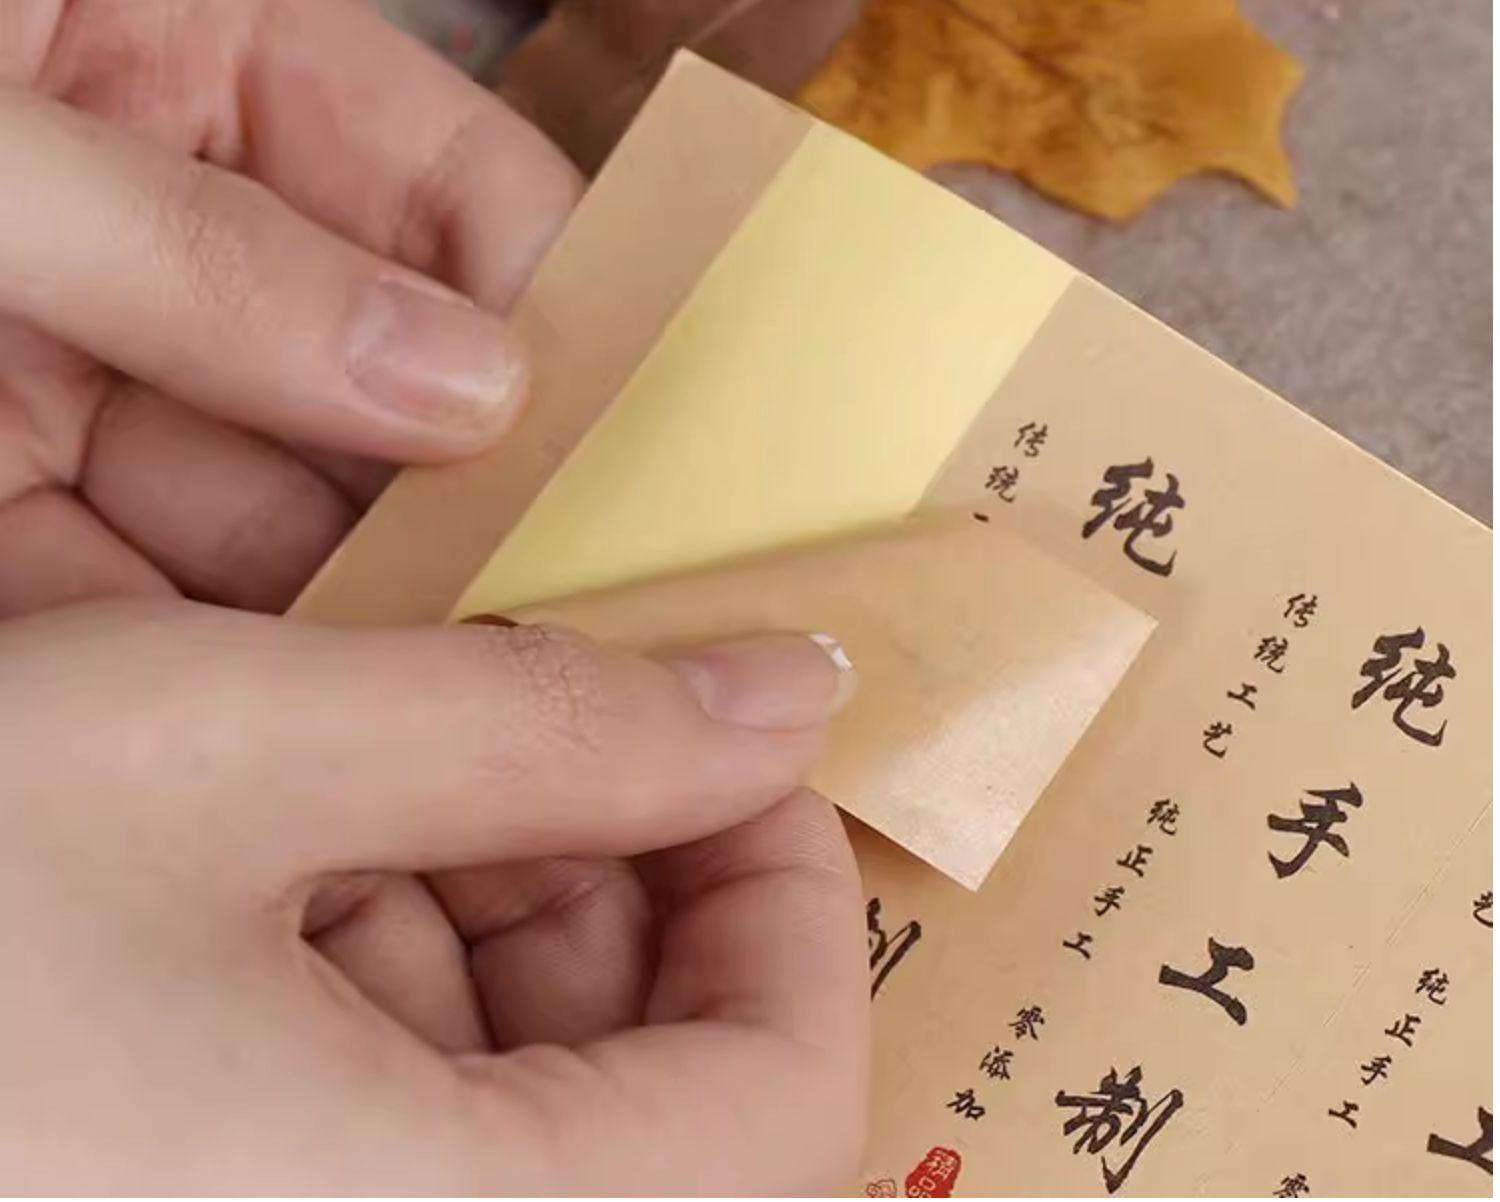 传统
纯
传统工艺
纯正手工
零添加
纯手工制
精品
纯正手工